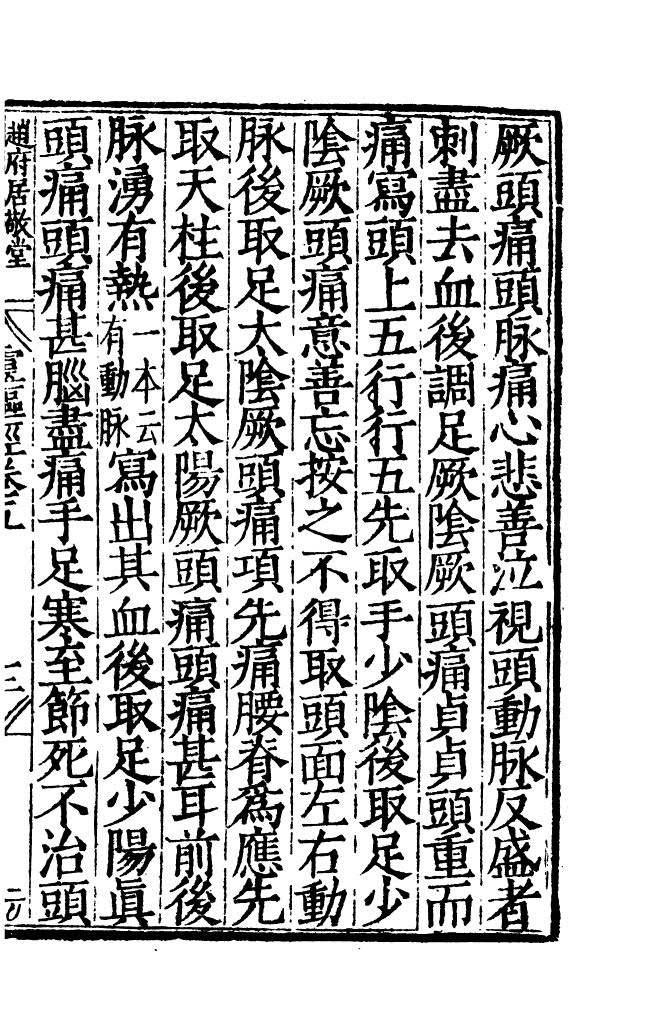 厥頭痛頭脉痛心悲善泣視頭動脉反盛者
刺盡去血後調足厥陰厥頭痛貞貞頭重而
痛寫頭上五行行五先取手少陰後取足少
陰厥頭痛意善忘按之不得取頭面左右動
脉後取足大陰厥頭痛項先痛腰脊爲應先
取天柱後取足太陽厥頭痛頭痛甚耳前後
脉湧有熱一本云有動脉寫出其血後取足少陽眞
頭痛頭痛甚腦盡痛手足寒至節死不治頭
趙府居敬堂 靈樞經卷之五 三